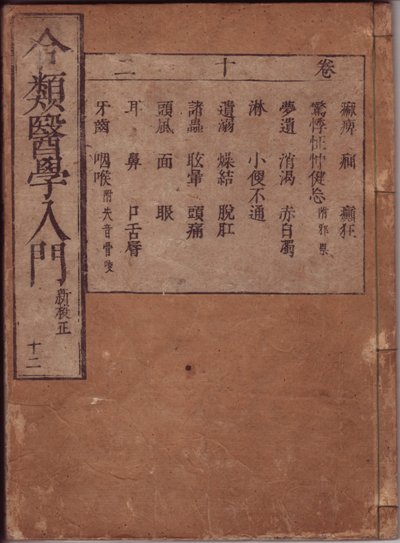 卷十二
癲狂
驚悸怔忡健忘 附邪祟
夢遺 消渴 赤白濁
淋 小便不通
遺溺 燥結 脫肛
諸蟲 眩暈 頭痛
頭風 面 眼
耳 鼻 口舌唇
牙齒 咽喉 附失音
合類醫學入門 新校正 十二